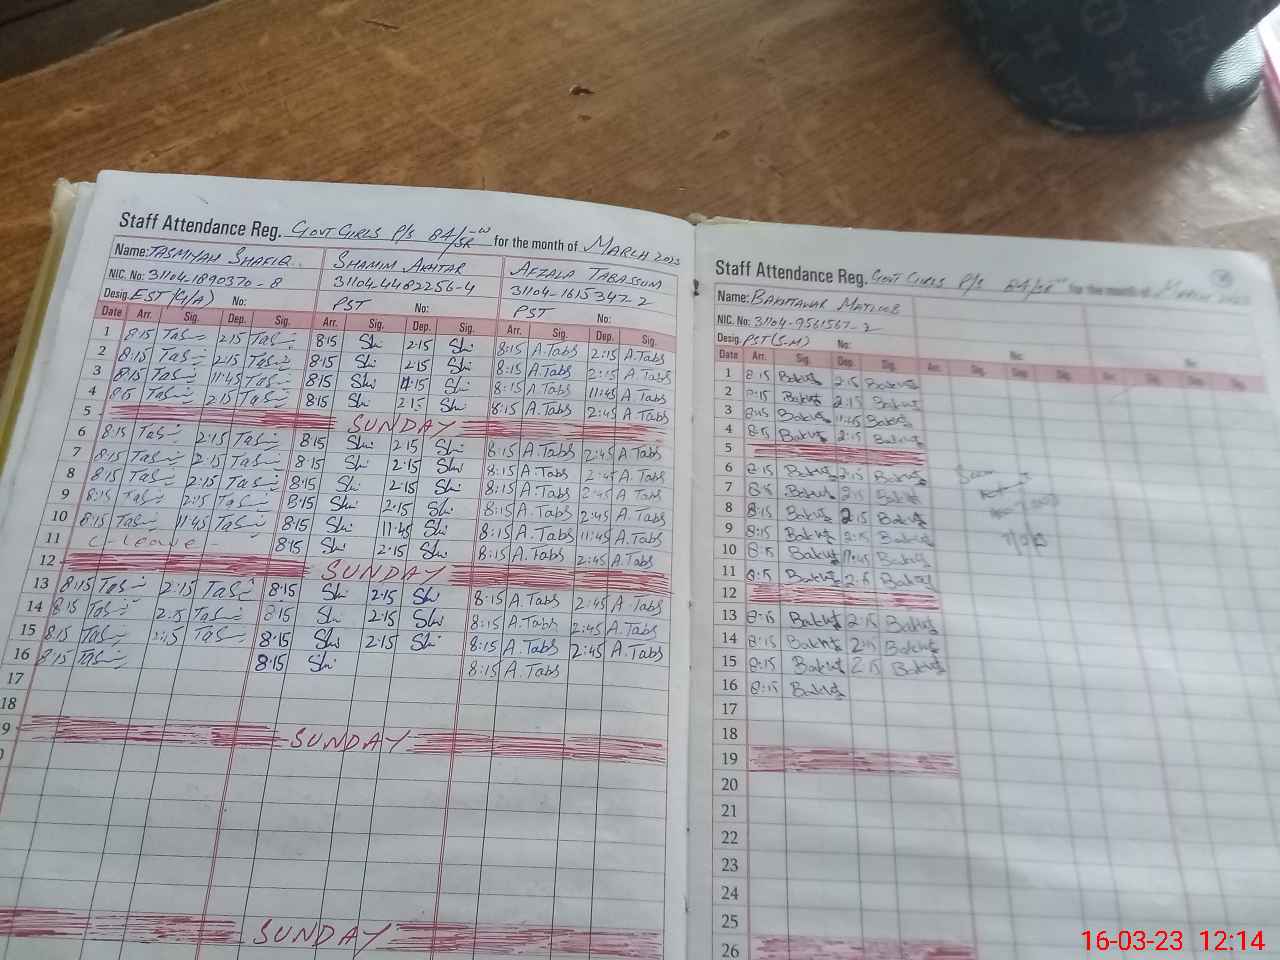 Staff Attendance Reg. GOVT GIRLS P/S 84/5R-W for the month of MARCH 2023
Name: TASMIYAH SHAFIQ SHAMIM AKHTAR AFZALA TABASSUM
NIC. No: 31104-1890370-8 31104-4482256-4 31104-1615347-2
Desig. EST (G/A) No: PST No: PST No:
Date Arr. Sig. Dep. Sig. Arr. Sig. Dep. Sig. Arr. Sig. Dep. Sig.
1 8:15 Tas 2:15 Tas 8:15 Sh 2:15 Sh 8:15 A.Tabs 2:15 A.Tabs
2 8:15 Tas 2:15 Tas 8:15 Sh 2:15 Sh 8:15 A.Tabs 2:15 A.Tabs
3 8:15 Tas 11:45 Tas 8:15 Sh Sh 8:15 A.Tabs 11:45 A.Tabs
4 Tas 2:15 Tas 8:15 Sh 2:15 Sh 8:15 A.Tabs 2:45 A.Tabs
5 SUNDAY
6 8:15 Tas 2:15 Tas 8:15 Sh 2:15 Sh 8:15 A.Tabs 2:45 A.Tabs
7 8:15 Tas 2:15 Tas 8:15 Sh 2:15 Sh 8:15 A.Tabs 2:45 A.Tabs
8 8:15 Tas 2:15 Tas 8:15 Sh 2:15 Sh 8:15 A.Tabs 2:45 A.Tabs
9 8:15 Tas 2:15 Tas 8:15 Sh 2:15 Sh 8:15 A.Tabs 2:45 A.Tabs
10 8:15 Tas 11:45 Tas 8:15 Sh 11:45 Sh 8:15 A.Tabs 11:45 A.Tabs
11 C-leave 8:15 Sh 2:15 Sh 8:15 A.Tabs 2:45 A.Tabs
12 SUNDAY
13 8:15 Tas 2:15 Tas 8:15 Sh 2:15 Sh 8:15 A.Tabs 2:45 A.Tabs
14 8:15 Tas 2:15 Tas 8:15 Sh 2:15 Sh 8:15 A.Tabs 2:45 A.Tabs
15 8:15 Tas 2:15 Tas 8:15 Sh 2:15 Sh 8:15 A.Tabs 2:45 A.Tabs
16 8:15 Tas 8:15 Sh 8:15 A.Tabs
17
18
9 SUNDAY
SUNDAY
Staff Attendance Reg. GOVT GIRLS P/S 84/5R for the month of MARCH
Name: BAKHTAWAR
NIC. No: 31104-9561567-2
Desig. PST (S.M) No: No: No:
Date Arr. Sig. Dep. Sig. Arr. Sig. Dep. Sig. Arr. Sig. Dep. Sig.
1 8:15 2:15
2 8:15 2:15
3 8:15 11:45
4 8:15 2:15
5
6 8:15 2:15
7 2:15
8 8:15 2:15
9 8:15 2:15
10 8:15 11:45
11 8:15
12
13 8:15 2:15
14 8:15 2:15
15 8:15 2:15
16 8:15
17
18
19
20
21
22
23
24
25
26
16-03-23 12:14